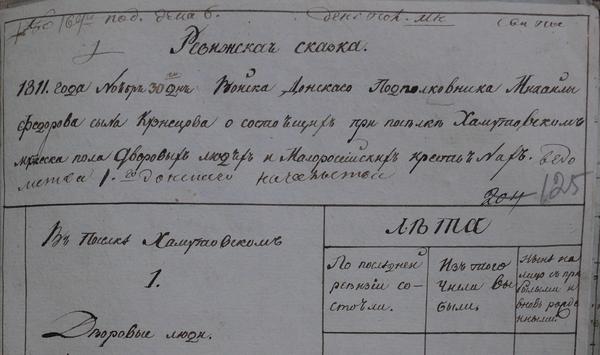 под. дела 6.
1
Ревижская сказка.
1811. года Ноября 30 дня Войска Донскаго Подполковника Михайлы
Федорова сына Кузнецова о состоящих при поселке Хамутовском
мужеска пола Дворовых людях и Малоросейских крестьянах.
1. го донскаго начальства
204
125
Въ Поселке Хамутовскомъ
1.
Дворовые люди.
ЛѢТА
По последней
ревизіи со-
стояли.
Изъ того
числа вы
были.
Ныне на
лицо съ при
былыми и
вновь рожде
нными.